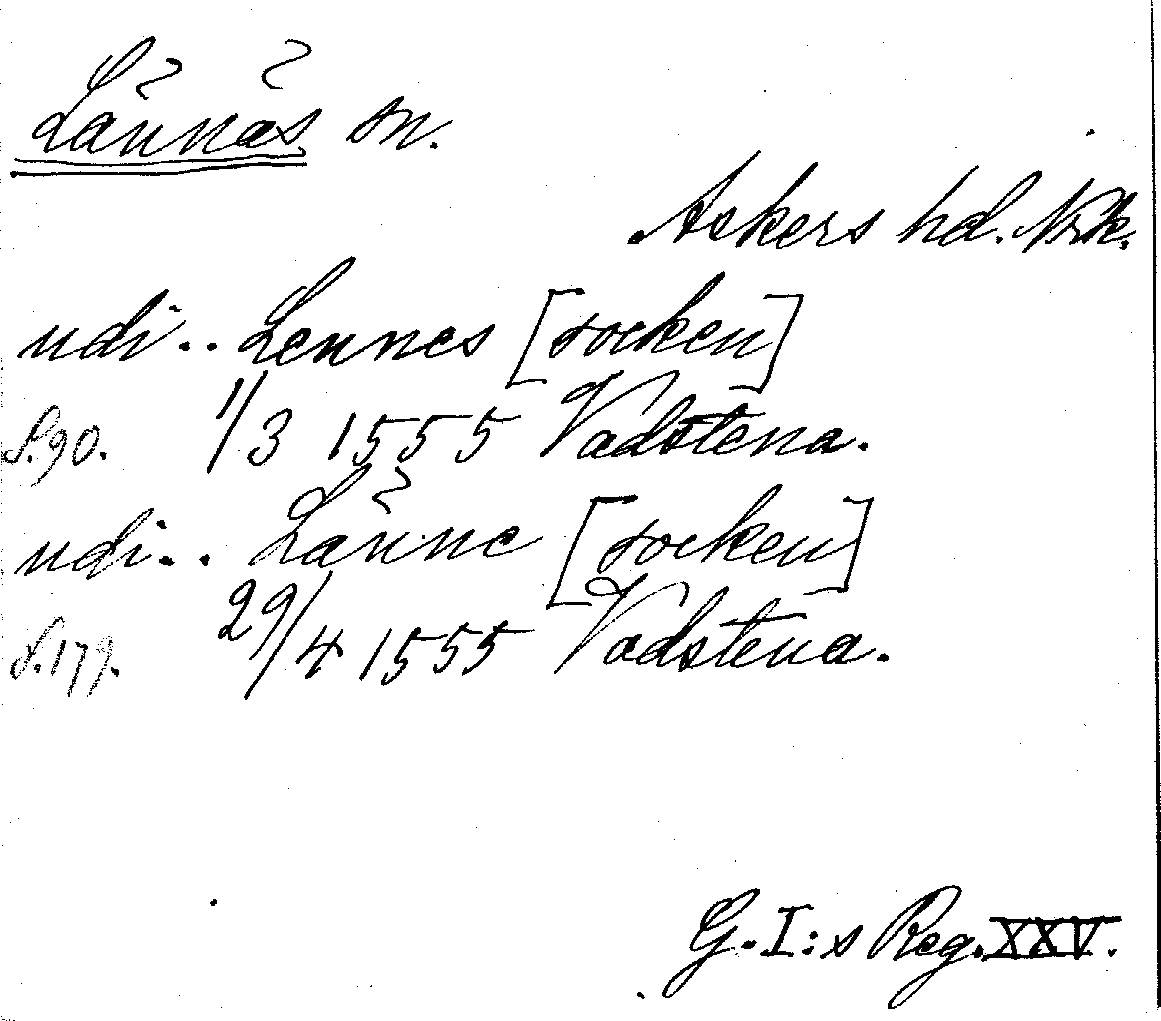 Lännäs sn.
Askers hd. Nrk.
udi .. Lennes [socken]
S. 90. 1/3 1555 Vadstena.
udi .. Länne [socken]
S. 179. 29/4 1555 Vadstena.
G. I:s Reg. XXV.